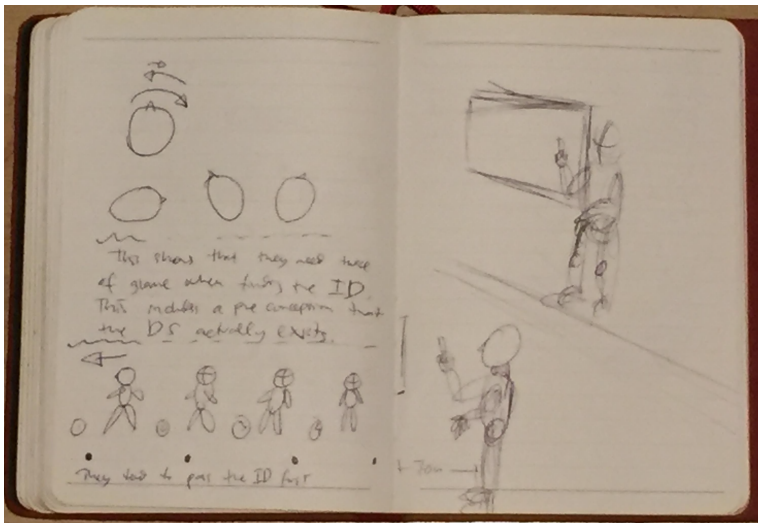 This shows that they need twice
of glance when finding the ID.
This includes a pre conception that
the DS actually exists.
They tend to pass the ID first
70cm